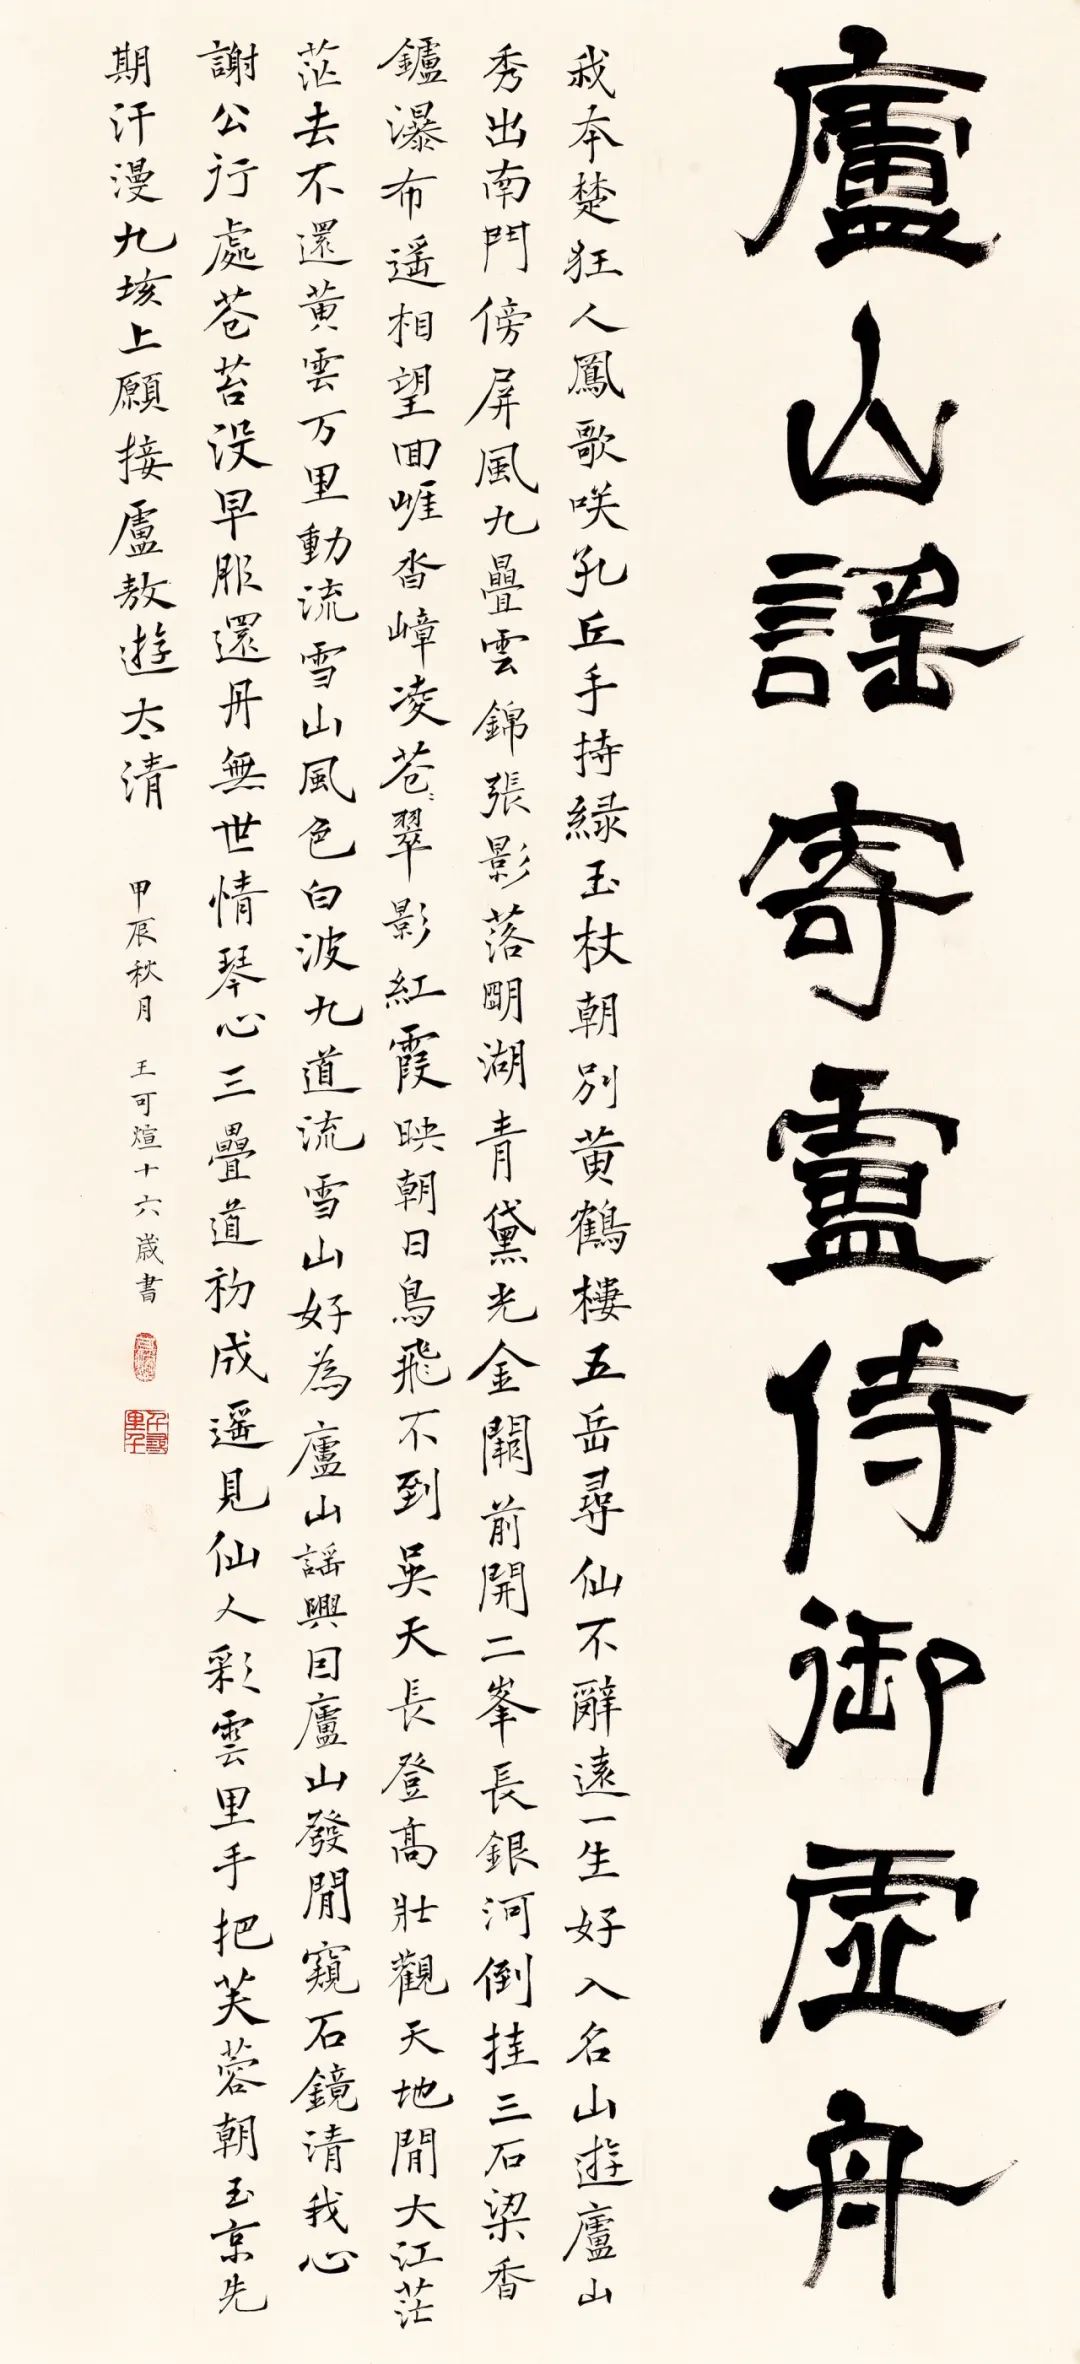 廬山謡寄盧侍御虛舟
我本楚狂人鳳歌咲孔丘手持緑玉杖朝別黄鶴樓五岳尋仙不辭遠一生好入名山遊廬山
秀出南鬥傍屏風九疊雲錦張影落朙湖青黛光金闕前開二峯長銀河倒挂三石梁香
鑪瀑布遥相望回崕沓嶂凌苍〻翠影紅霞映朝日鳥飛不到吳天長登髙壯觀天地間大江茫
茫去不還黄雲万里動流雪山風色白波九道流雪山好為廬山謡興因廬山發閒窺石鏡清我心
謝公行處苍苔没早服還丹無世情琴心三疊道初成遥見仙人彩雲里手把芙蓉朝玉京先
期汗漫九垓上願接盧敖遊太清
甲辰秋月 王可煊十六歲書